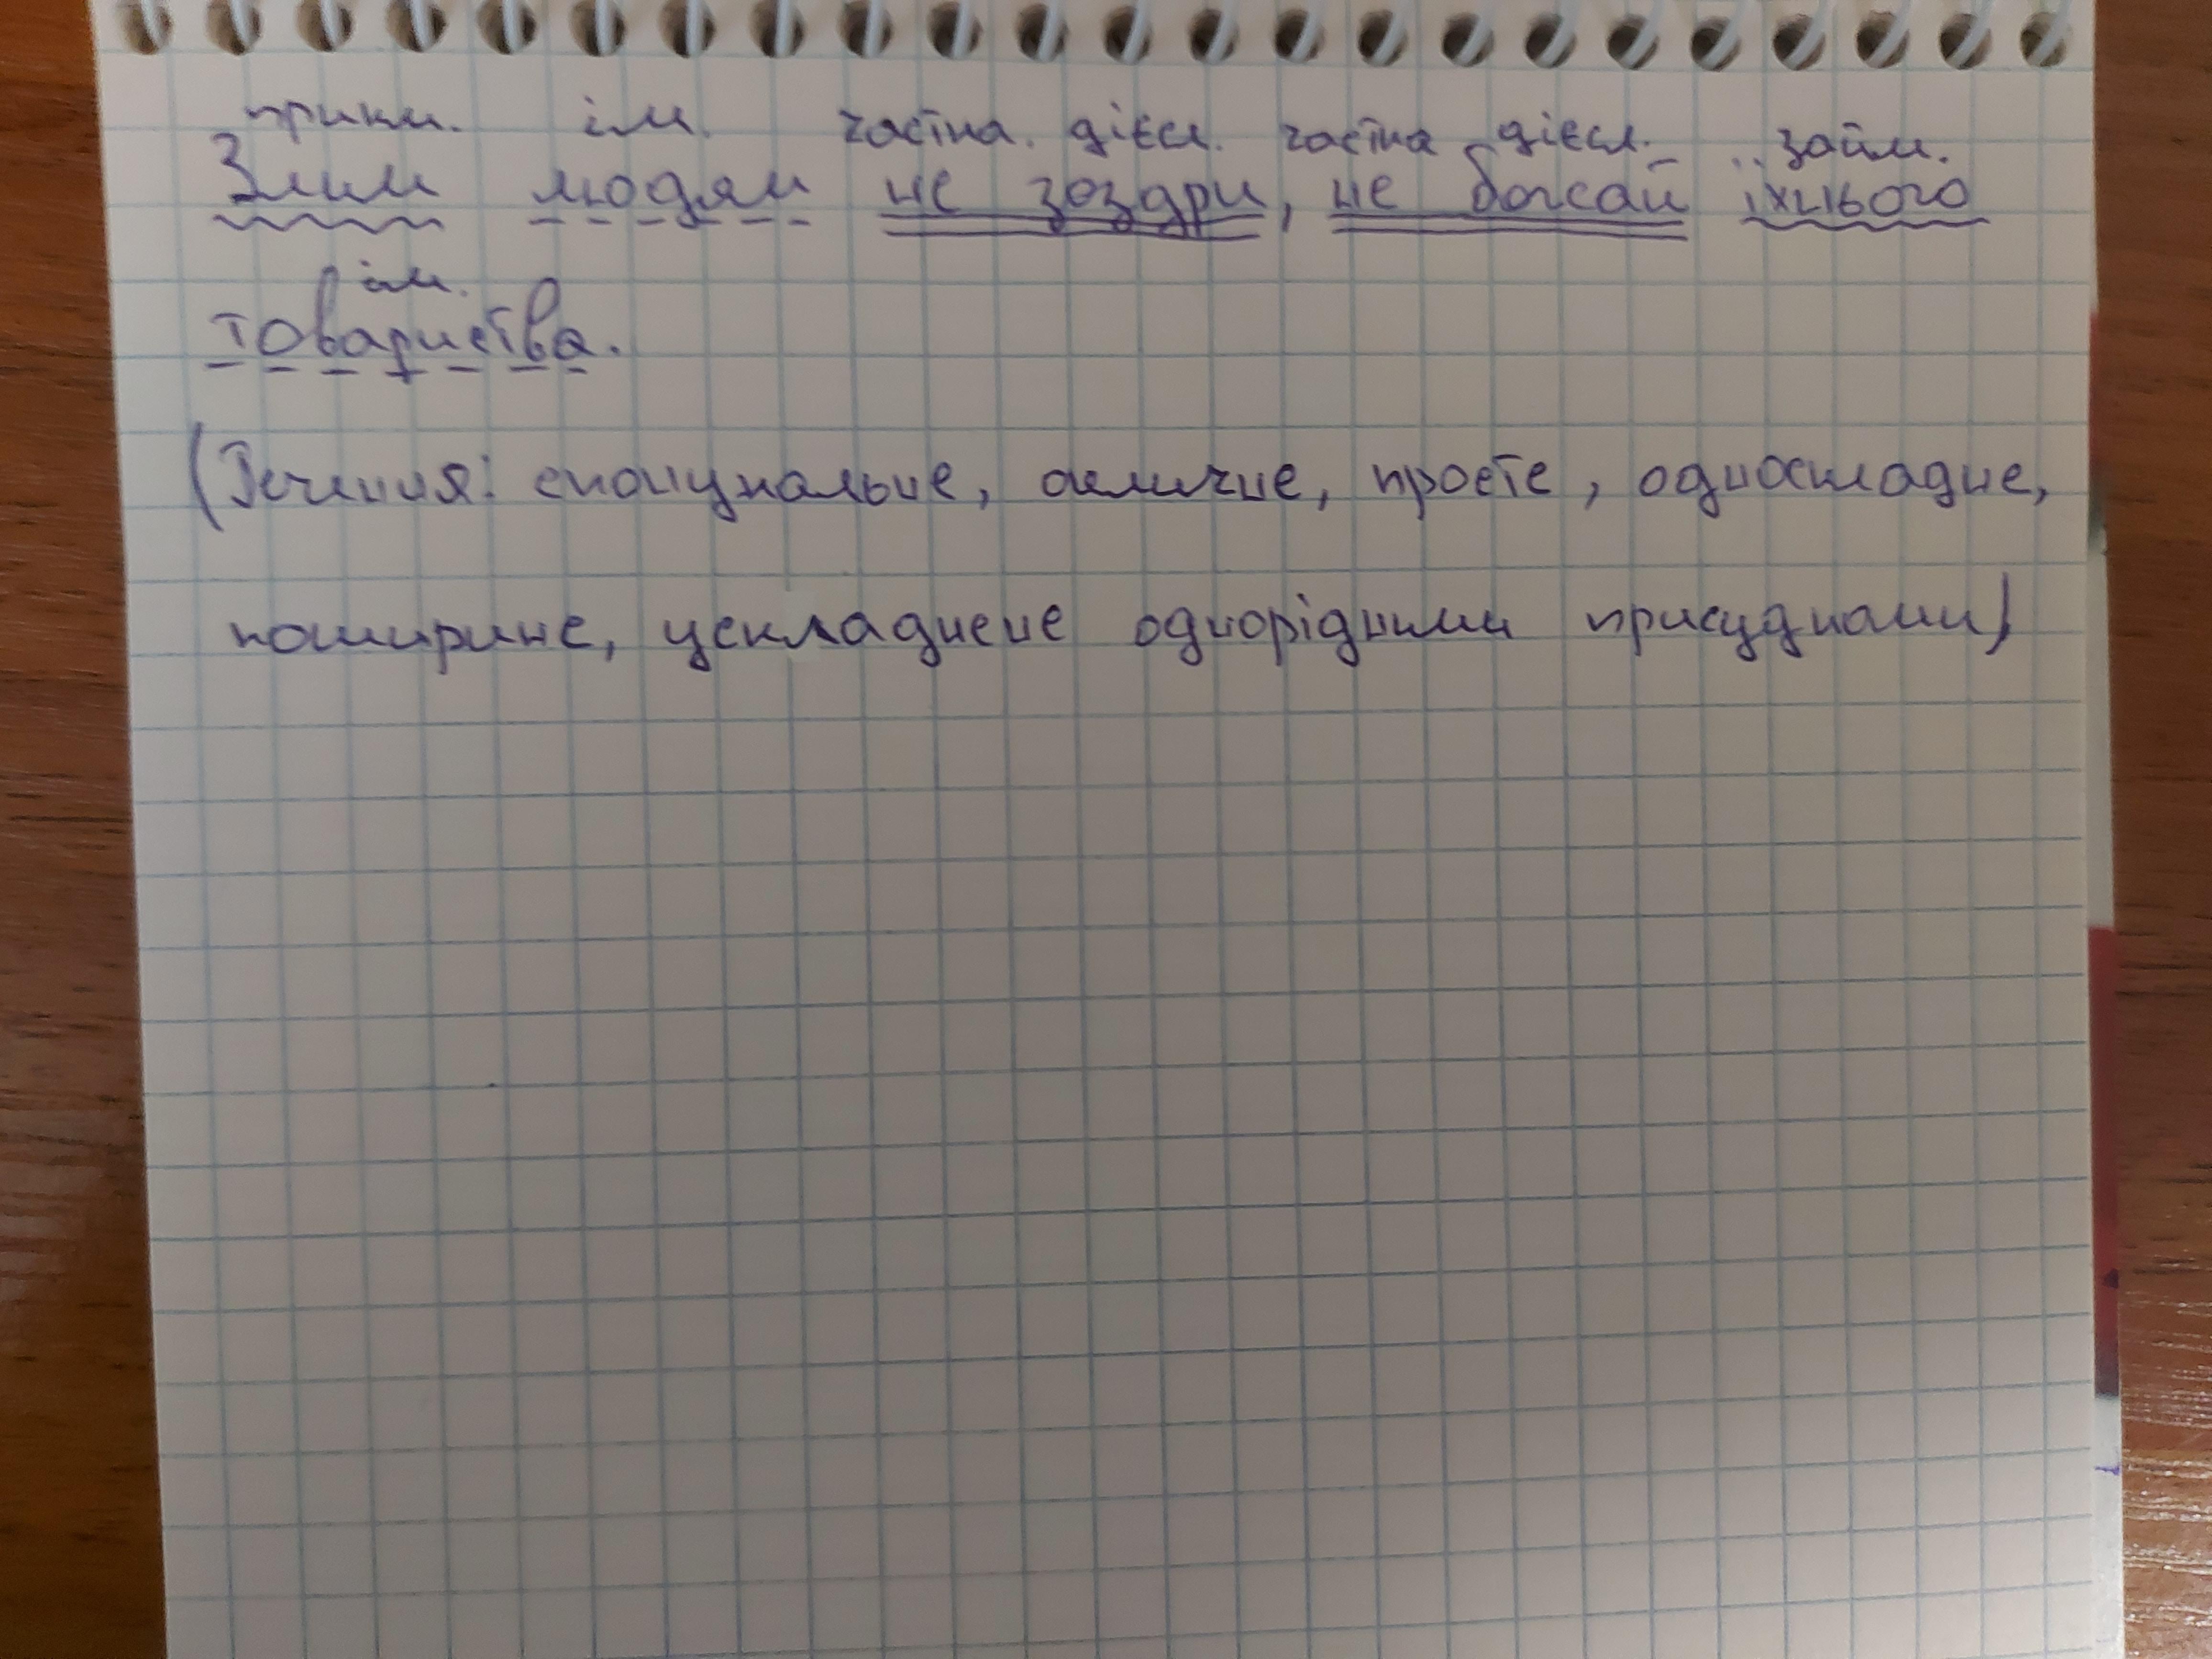 прикм. ім. частка. дієсл. частка дієсл. займ.
Злим людям не зоздри, не бажай їхнього
ім.
товариства.
(Речення: спонукальне, окличне, просте, односкладне,
поширине, ускладнене однорідними присудками)